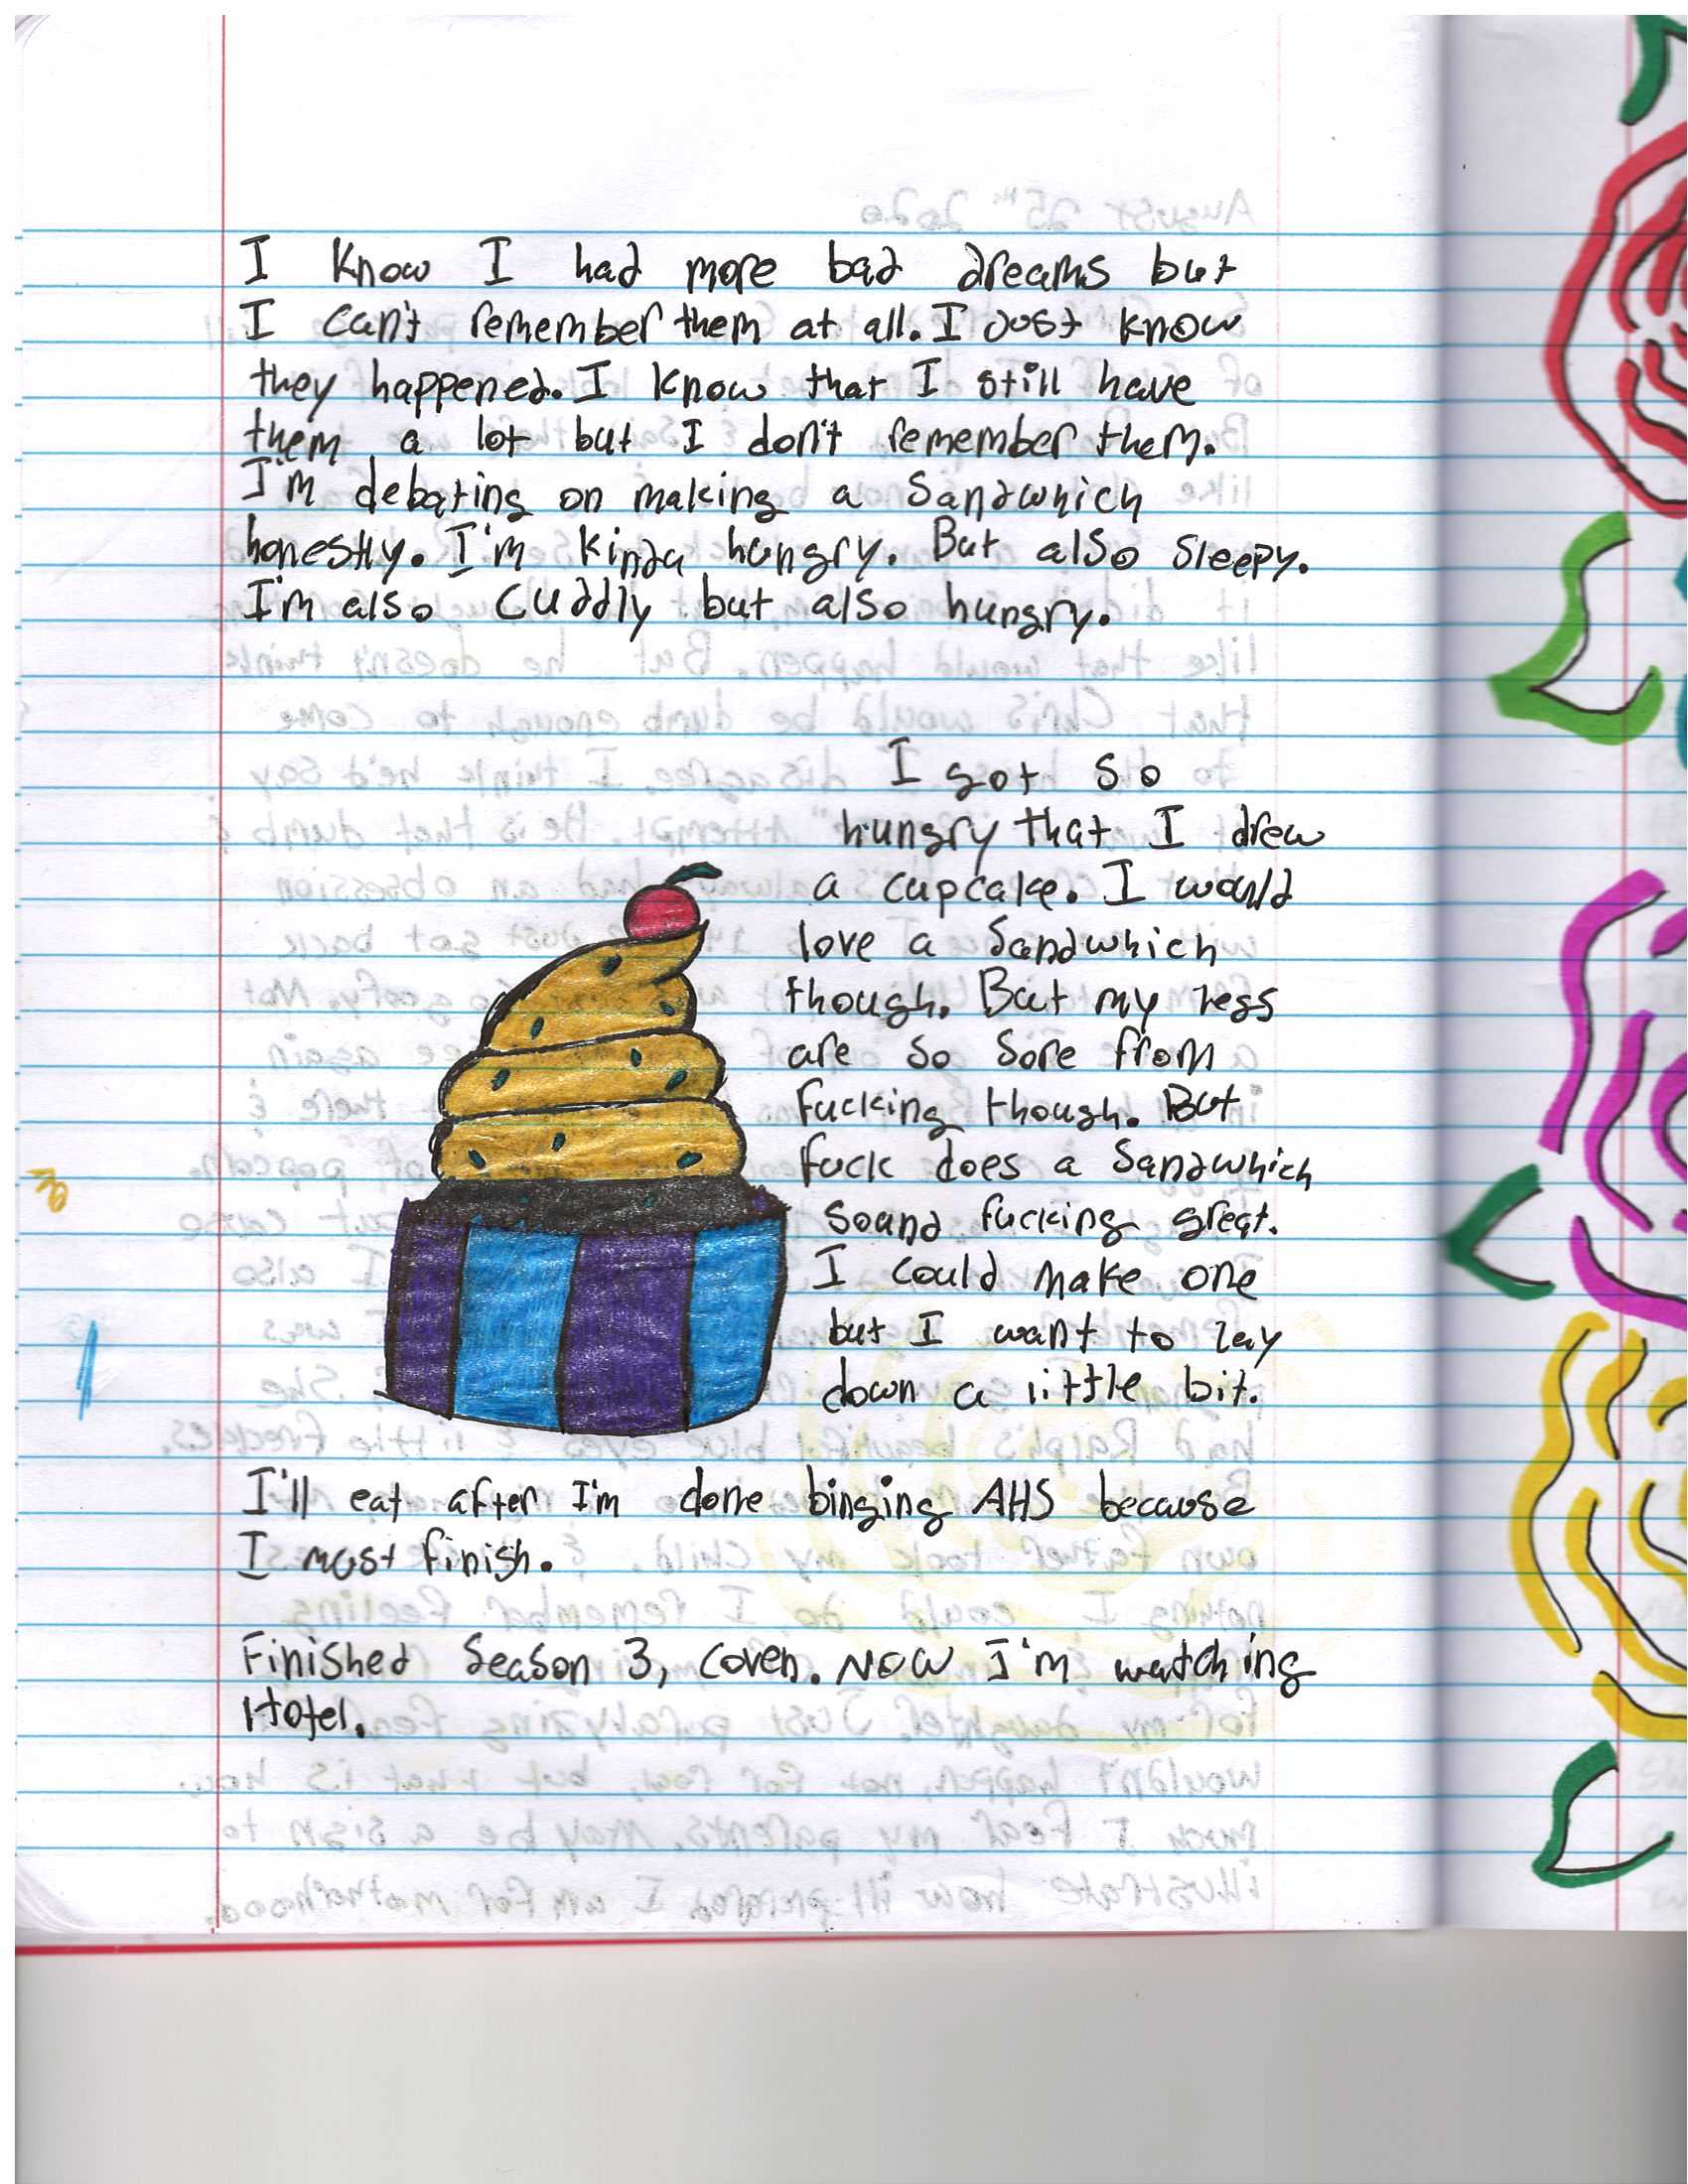 I know I had more bad dreams but
I can't remember them at all. I Just know
they happened. I know that I still have
them a lot but I don't remember them.
I'm debating on making a Sandwhich
honestly. I'm kinda hungry. But also sleepy.
I'm also cuddly but also hungry.
I got so
hungry that I drew
a cupcake. I would
love a Sandwhich
though. But my legs
are so sore from
fucking though. But
fuck does a Sandwhich
sound fucking great.
I could make one
but I want to lay
down a little bit.
I'll eat after I'm done binging AHS because
I must finish.
Finished Season 3, Coven. Now I'm watching
Hotel.